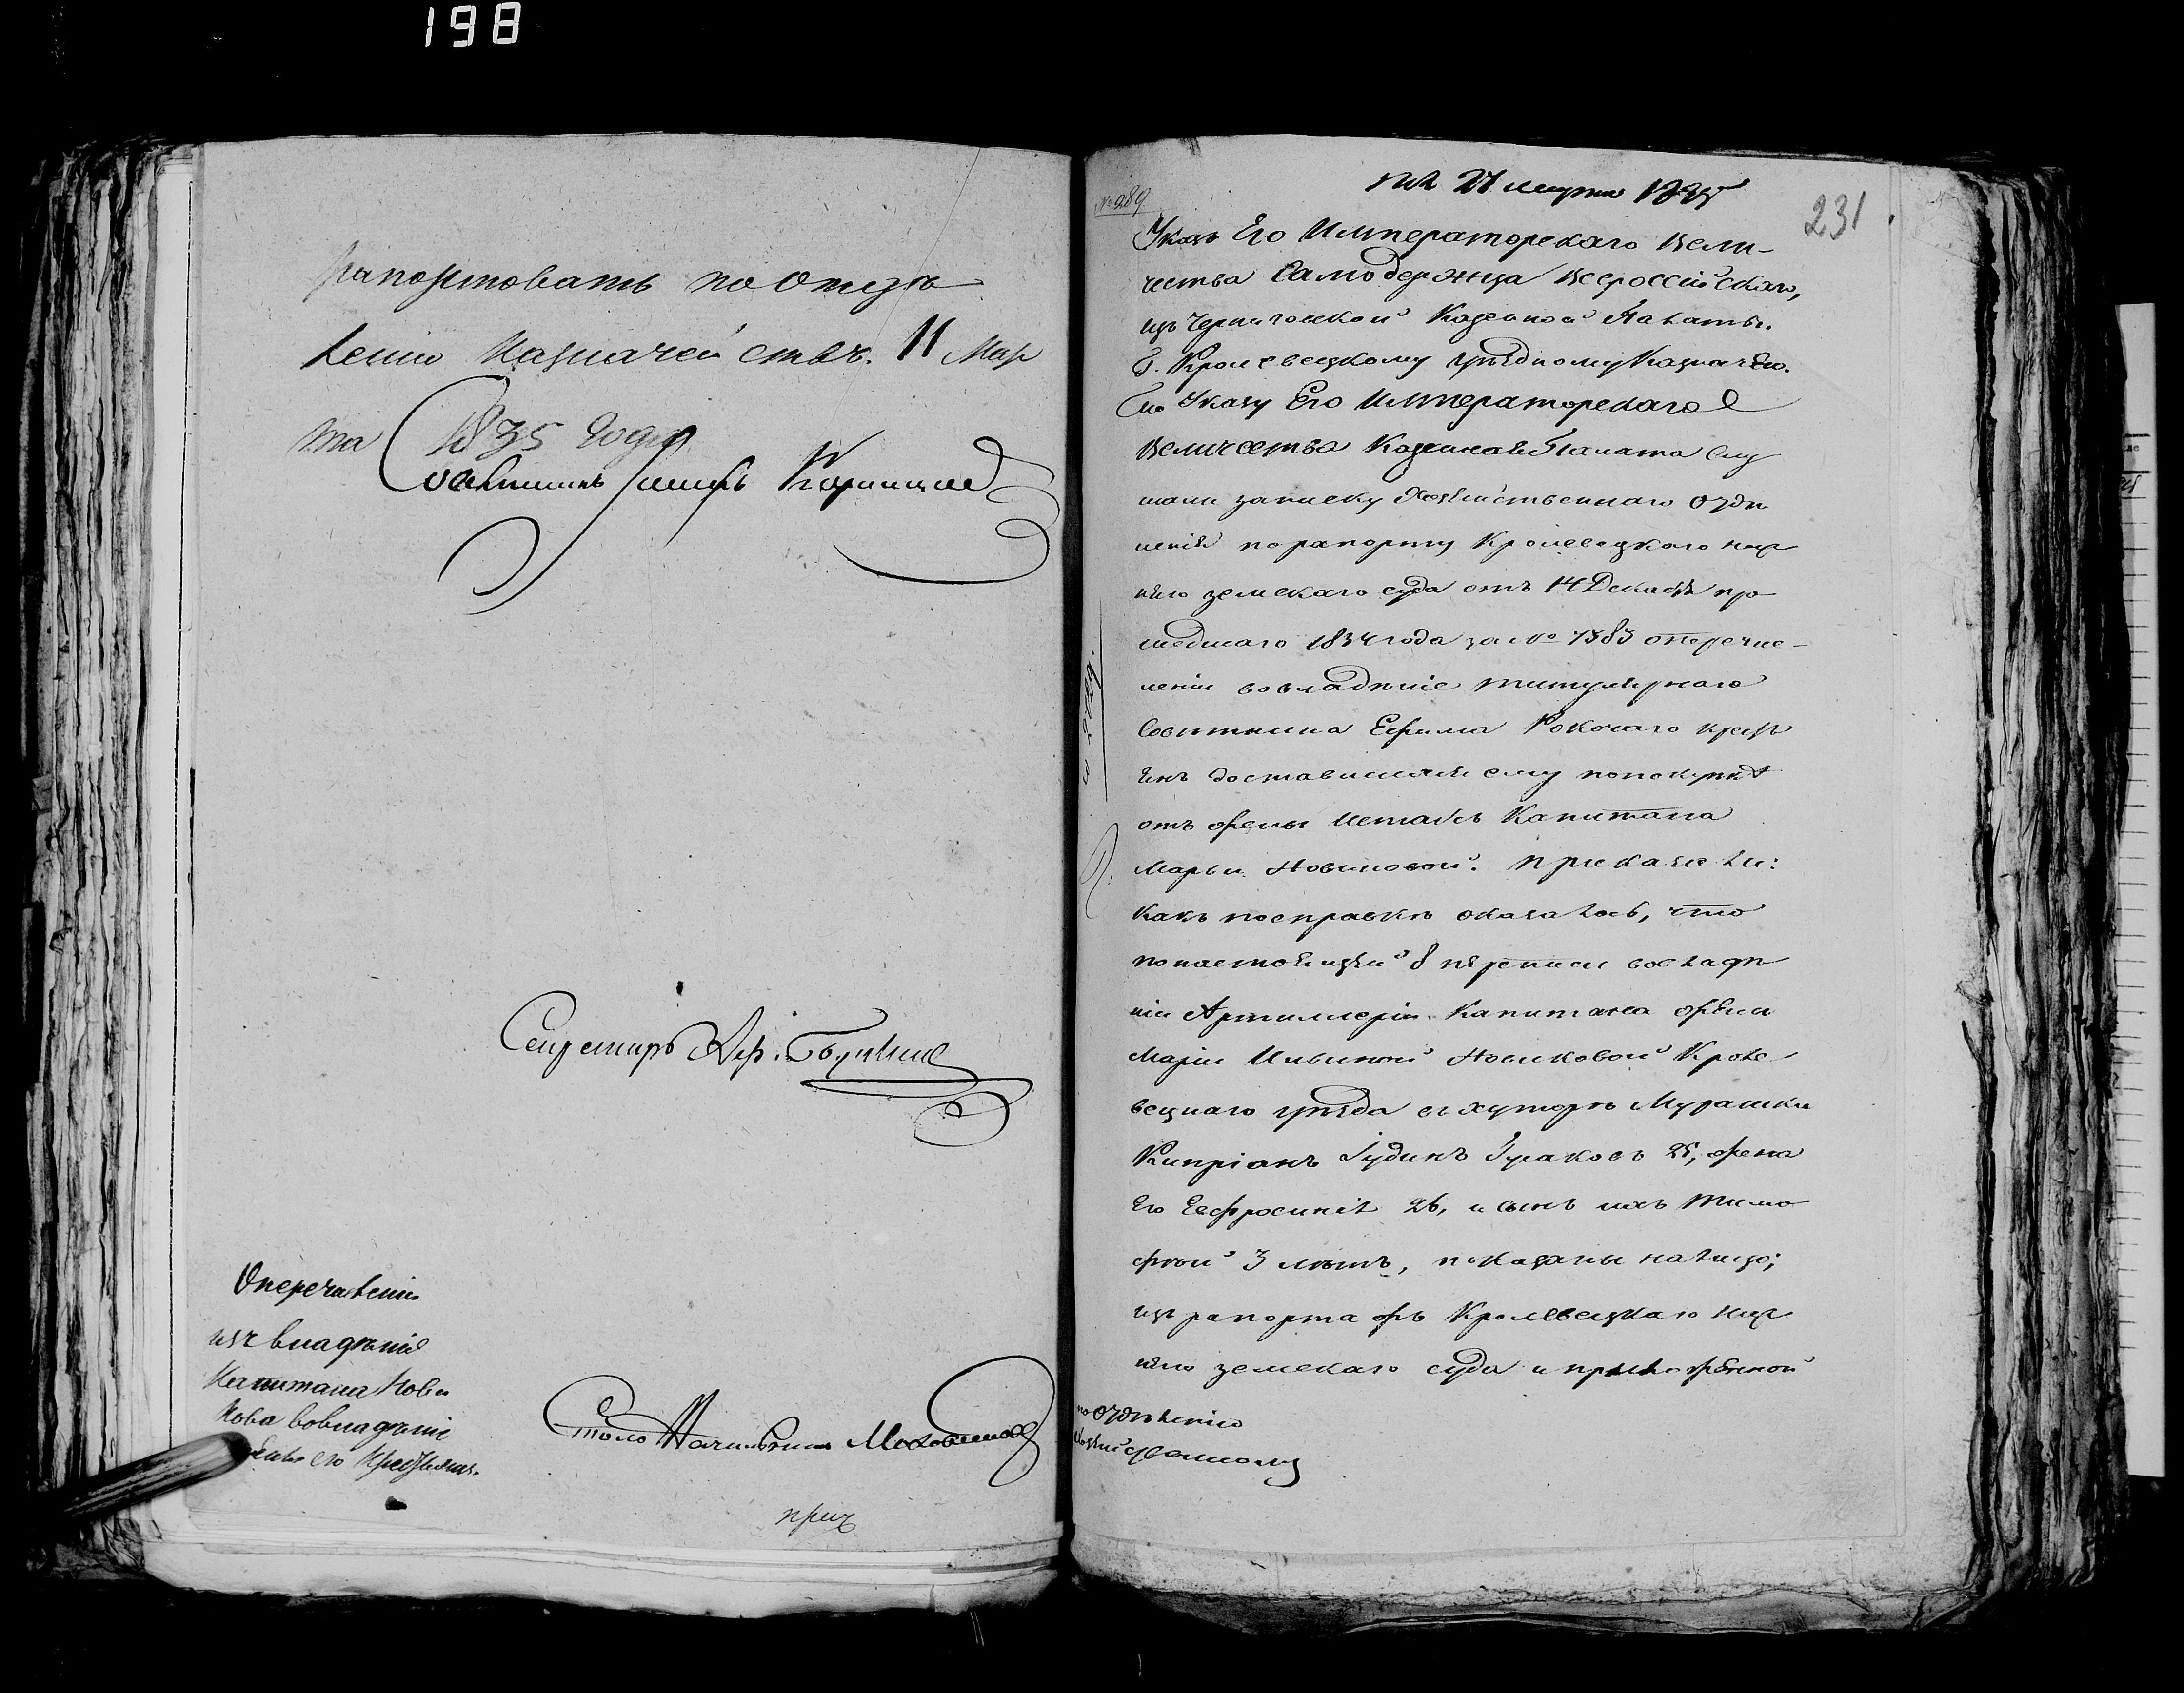 198
рапортовать по Отдѣ
ленію Казначействъ. 11 Мар
та 1835 года
Совѣтникъ
Секретарь
Столоначальникъ
О перечисленіи
изъ владѣнія
Капитана Нови
кова во владѣніе
его крестьянъ.
№ 289
27 марта 1835
231
Указъ Его Императорскаго Вели-
чества Самодержца Всероссійскаго,
изъ Черниговской Казенной Палаты.
Г. Кролевецкому уѣздному Казначею.
По Указу Его Императорскаго
Величества Казенная Палата слу
шали записку Хозяйственнаго Отдѣ
ленія по рапорту Кролевецкаго ниж
няго земскаго суда отъ 14 Декабря про
шедшаго 1834 года за № 7383 о перечис-
леніи во владѣніе титулярнаго
Совѣтника Ефима Рокочаго крест
янъ доставшихся ему по покупкѣ
отъ жены Штабсъ Капитана
Марьи Новиковой. Приказали:
Какъ по справкѣ оказалось, что
по настоящей 8 переписи во владѣ
ніи Артиллеріи Капитана жены
Маріи Ильиной Новиковой Кроле
вецкаго уѣзда въ хуторѣ Мурашки
Кипріанъ Іудинъ 25, жена
его Евфросинія 26, и сынъ ихъ Тимо
фѣй 3 лѣтъ, показаны на лицо;
изъ рапорта жъ Кролевецкаго ниж
няго земскаго суда и приложенной
по Отдѣленію
Хозяйственному